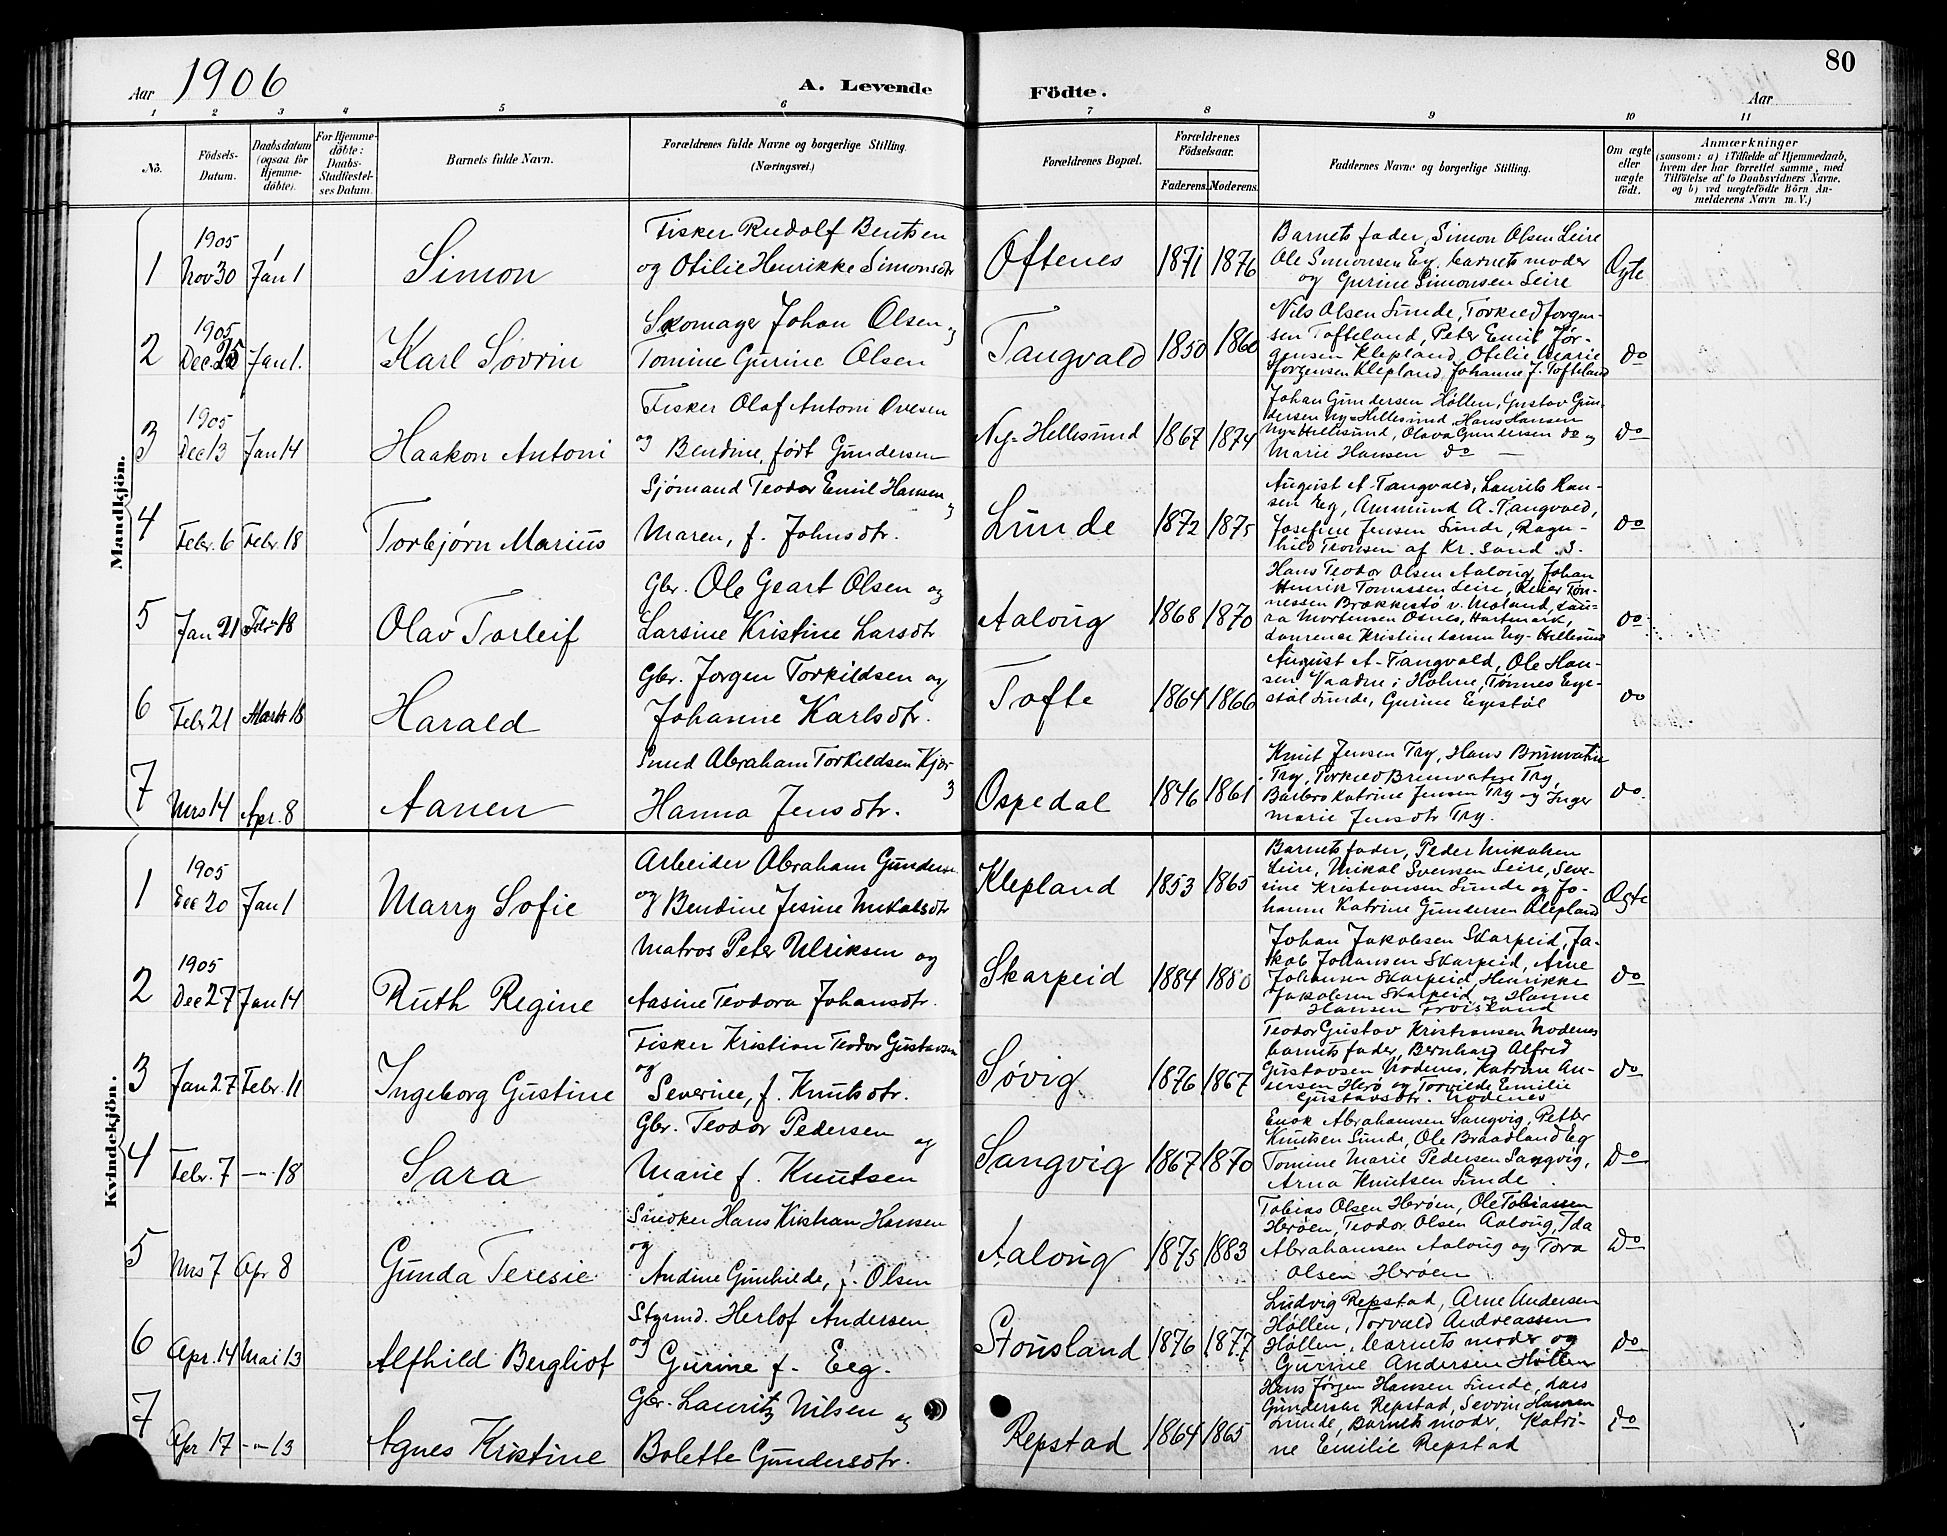 80
Aar 1906
A. Levende Födte.
Aar
1 2 3 4 5 6 7 8 9 10 11
No.
Födsels-
Datum.
Daabsdatum
(ogsaa for
Hjemme-
døbte).
For Hjemme-
döbte:
Daabs-
Stadfæstel-
ses Datum.
Barnets fulde Navn.
Forældrenes fulde Navne og borgerlige Stilling.
(Næringsvei.)
Forældrenes Bopæl.
Forældrenes
Fødselsaar.
Faderens. Moderens.
Faddernes Navne og borgerlige Stilling.
Om ægte
eller
uægte
født.
Anmærkninger
(saasom: a) i Tilfælde af Hjemmedaab,
hvem der har forrettet samme, med
Tilföielse af to Daabsvidners Navne,
og b) ved uegtefödte Börn An-
melderens Navn m. V.)
Mandkjön.
1 1905 Nov 30 Jan 1 Simon
Fisker Rudolf Bentsen
og Otilie Henrikke Simonsdtr
Oftenes 1871 1876
Barnets fader, Simon Olsen Leire
Ole Simonsen Eg, barnets moder
og Gurine Simonsen Leire
Ægte
2 1905 Dec. 25 Jan 1. Karl Søvrin
Skomager Johan Olsen og
Tomine Gurine Olsen
Tangvald 1850 1860
Nils Olsen Lunde, Torkild Jørgen-
sen Tofteland, Peter Emil Jør-
gensen Klepland, Otilie Marie
Jørgensen Klepland, Johanne J. Tofteland
do
3 1905 Dec 13 Jan 14 Haakon Antoni
Fisker Olaf Antoni Ovesen
og Bendine, født Gundersen
Ny-Hellesund 1867 1874
Johan Gundersen Høllen, Gustav Gun-
dersen Ny-Hellesund, Hans Hansen
Ny-Hellesund, Olava Gundersen do og
Marie Hansen do —
do
4 Febr. 6 Febr. 18 Torbjørn Marius
Sjømand Teodor Emil Hansen og
Maren, f. Johnsdtr.
Lunde 1872 1875
August A. Tangvald, Laurits Han-
sen Eg, Ammund A. Tangvald,
Josefine Jensen Lunde, Ragn-
hild Tronsen af Kr. sand S.
do
5 Jan 21 Febr 18 Olav Torleif
Gbr. Ole Geart Olsen og
Larsine Kristine Larsdtr
Aaløug 1868 1870
Hans Teodor Olsen Aaloug, Johan
Henrik Tomassen Leire, Peter Tøn-
nessen Brækkestø v. Moland, Lau-
ra Mortensen Osnes, Hartmark,
Laurence Kristine Larsen Ny-Hellesund
do
6 Febr 21 Marts 18 Harald
Gbr. Jørgen Torkildsen og
Johanne Karlsdtr.
Tofte 1864 1866
August A. Tangvald, Ole Han-
sen Vaadne i Holme, Tønnes Ege-
støl Lunde, Gurine Egestøl
do
7 Mrs 14 Apr. 8 Aanen
Smed Abraham Torkildsen Kjær
Hanna Jensdtr.
Ospedal 1846 1861
Knut Jensen Try, Hans Brunvatne
Try, Torkild Brunvatne Try,
Barbro Katrine Jensen Try og Inger
Marie Jensdtr Try.
do.
Kvindekjön.
1 1905 Dec 20 Jan 1 Marry Sofie
Arbeider Abraham Gundersen
og Bendine Jesine Mikalsdtr
Klepland 1853 1865
Barnets fader, Peder Mikalsen
Leire, Mikal Svensen Leire, Seve-
rine Kristiansen Lunde og Jo-
hanne Katrine Gundersen Klepland
Ægte
2 1905 Dec 27 Jan 14 Ruth Regine
Matros Peter Ulriksen og
Aasine Teodora Johansdtr.
Skarpeid 1884 1880
Johan Jakobsen Skarpeid, Ja-
kob Johansen Skarpeid, Arne
Johansen Skarpeid, Henrikke
Jakobsen Skarpeid, og Hanne
Hansen Frøisland
do
3 Jan 27 Febr. 11 Ingeborg Gustine
Fisker Kristian Teodor Gustavsen
og
Severine, f. Knutsdtr.
Søvig 1876 1867
Teodor Gustav Kristiansen Nodenes
barnets fader, Bernhard Alfred
Gustavsen Nodenes, Katrine An-
dersen Herø og Torvilde Emilie
Gustavsdtr. Nodenes
do
4 Febr. 7 —"— 18 Sara
Gbr. Teodor Pedersen og
Marie f. Knutsen
Langvig 1867 1870
Enok Abrahamsen Langvig, Petter
Knutsen Lunde, Ole Braadland Eg
Tomine Marie Pedersen Langvig,
Arna Knutsen Lunde.
Do
5 Mrs 7 Apr 8 Gunda Teresie
Snedker Hans Kristian Hansen
og
Andine Gunhilde, f. Olsen
Aaløug 1875 1883
Tobias Olsen Herøen, Ole Tobiassen
Herøen, Teodor Olsen Aaloug, Ida
Abrahamsen Aaloug og Tora
Olsen Herøen
Do
6 Apr. 14 Mai 13 Alfhild Bergliot
Styrmd. Herlof Andersen
og Gurine f. Eeg.
Stousland 1876 1877
Ludvig Repstad, Arne Andersen
Høllen, Torvald Andreassen
Høllen, barnets moder og
Gurine Andersen Høllen
Do
7 Apr 17 —"— 13 Agnes Kristine
Gbr. Lauritz Nilsen og
Bolette Gundersdtr.
Repstad 1864 1865
Hans Jørgen Hansen Lunde, Lars
Gundersen Repstad, Sevrin Hansen
Lunde, Barnets moder, Katri-
ne Emilie Repstad
do